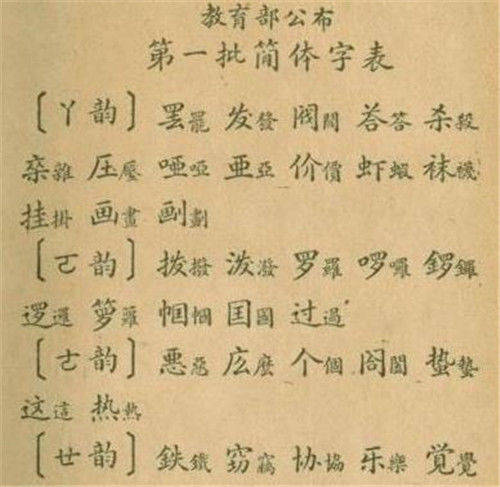 教育部公布
第一批简体字表
〔ㄚ韵〕罢罷 发發 阀閥 荅答 杀殺
杂雜 圧壓 唖啞 亜亞 价價 虾蝦 袜襪
挂掛 画畫 㓰劃
〔ㄛ韵〕拨撥 泼潑 罗羅 啰囉 锣鑼
逻邏 箩籮 帼幗 囯國 过過
〔ㄜ韵〕悪惡 庅麼 个個 阁閤 蛰蟄
这這 热熱
〔ㄝ韵〕鉄鐵 窃竊 协協 乐樂 覚覺